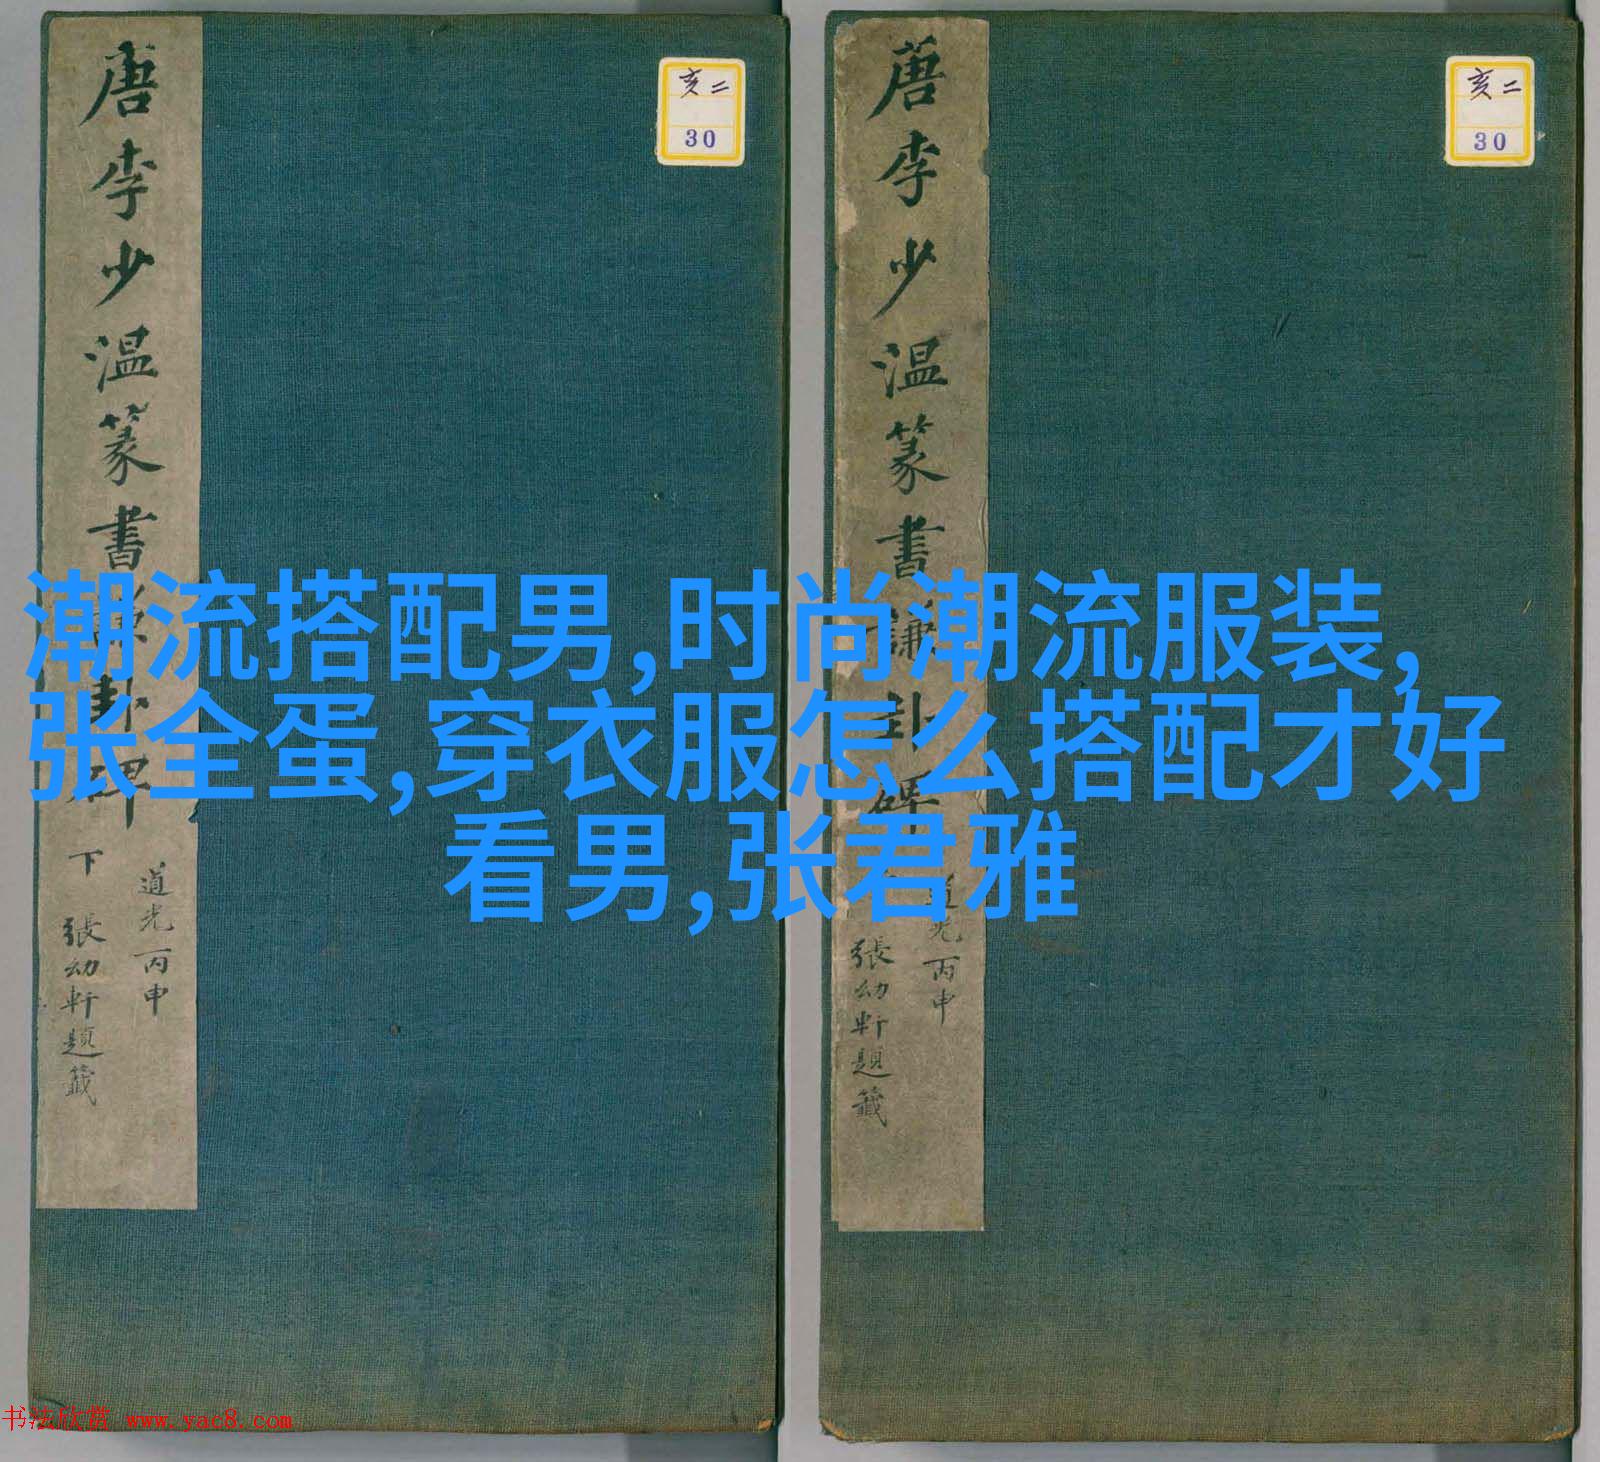 唐李少温篆書謙卦碑 下
道光丙申
張幼軒題籤
亥二
30
唐李少温篆書謙卦碑
道光丙申
張幼軒題籤
亥二
30
潮流搭配男,时尚潮流服装,
张全蛋,穿衣服怎么搭配才好
看男,张君雅
书法欣赏 www.yac8.com